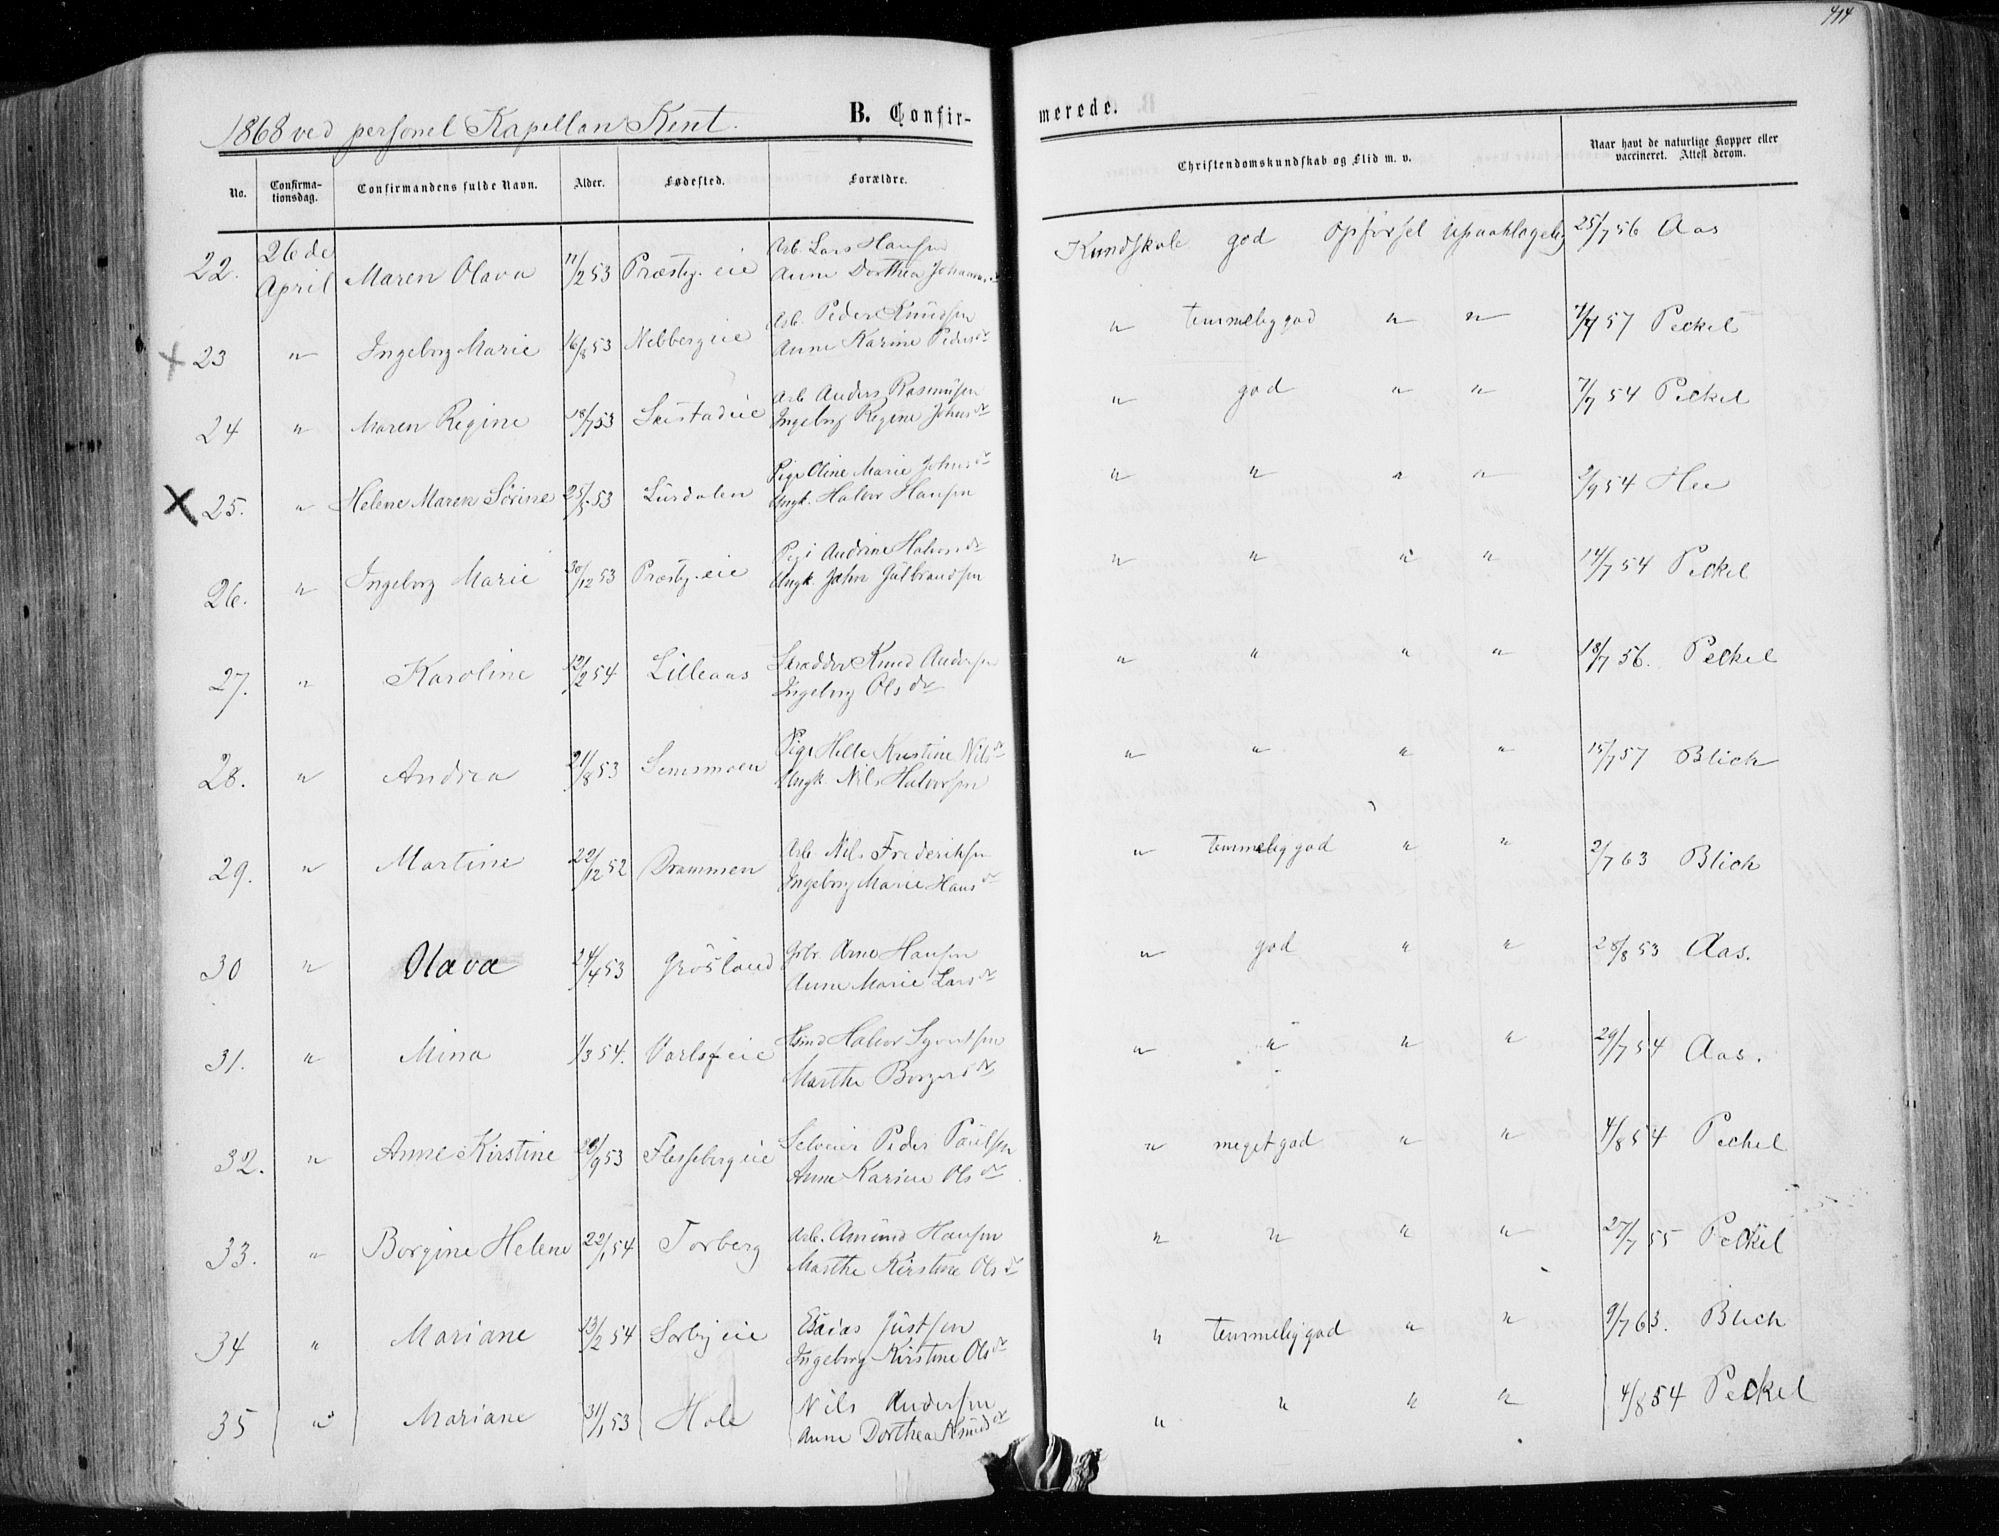 414
1868 ved personel Kapellan Kent.
B. Confir-
merede.
No.
Confirma-
tionsdag.
Confirmandens fulde Navn.
Alder.
Fødested.
Forældre.
Christendomskundskab og Flid m. v.
Naar havt de naturlige Kopper eller
vaccineret. Attest derom.
22. 26de April Maren Olava 11/2 53 Præstg. eie Arb. Lars Hansen Kundskab god Opførsel upaaklagelig 25/7 56 Aas
Anne Dorthea
23 " Ingeborg Marie 16/8 53 Nebbergeie Arb. Peder Knudsen " temmelig god " " 7/7 57 Peckel
Anne Karine Pedersdr
24 " Maren Regine 18/7 53 Arb Anders Rasmusen " god " " 7/7 54 Peckel
Ingeborg Regine Johnsdr
25. " Helene Maren Sörine 25/5 53 Lurdalen Pige Oline Marie Johnsdr " " " " 2/9 54 Hee
Ungk. Halvor Hansen
26. " Ingeborg Marie 30/12 53 Præstg. eie Pige Andrine Halvorsdr " " " " 14/7 54 Peckel
Ungk. John Gulbrandsen
27. " Karoline 12/2 54 Lilleaas Skrædder Knud Andersen " " " " 18/7 56. Peckel
Ingeborg Olsdr
28. " Andrea 21/8 53 Semsmoen Pige Helle Kristine Nilsdr " " " " 15/7 57 Blich
Ungk. Nils Halvorsen
29. " Martine 22/12 52 Drammen Arb. Nils Frederiksen " temmelig god " " 2/7 63 Blich
Ingeborg Marie Hansdr
30 " Olava 24/4 53 Grösland Gbr. Arne Hansen " god " " 28/8 53 Aas.
Anne Marie Larsdr
31. " Mina 1/3 54. Halvor " " " " 29/7 54 Aas.
Marthe Borgersdr
32. " Anne Kirstine 20/9 53 Flessebergeie Selveier Peder Paulsen " meget god " " 4/8 54 Peckel
Anne Karine Olsdr
33. " Borgine Helene 22/1 54 Torberg Arb. Amund Hansen " " " " 27/7 55 Peckel
Marthe Kirstine Olsdr
34 " Mariane 13/2 54 Sorbyeie Esaias Justsen " temmelig god " " 9/7 63. Blich
Ingeborg Kirstine Olsdr
35 " Mariane 31/1 53 Hole Nils Andersen " " " " 4/8 54 Peckel
Anne Dorthea